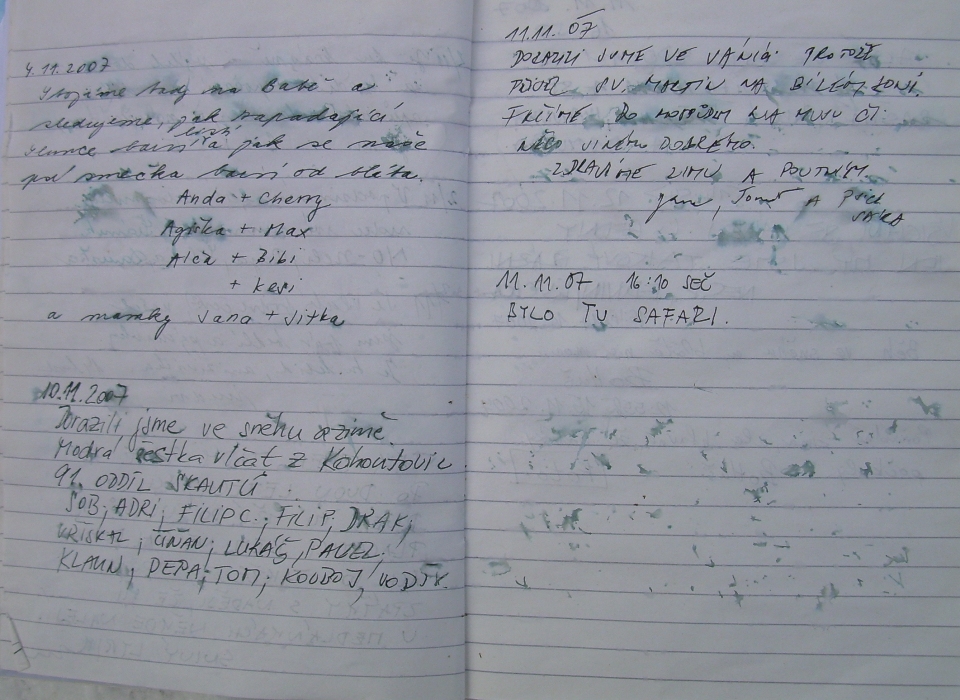 4.11.2007
Stojíme tady na Babě a
sledujeme, jak napadající
listí
slunce barví a jak se naše
psí smečka barví od bláta.
Anda + Cherry
Agiška + Max
Alča + Bibi
+ Keri
a mamky Jana + Jitka
10.11.2007
Dorazili jsme ve sněhu a zimě.
Modrá šestka vlčat z Kohoutovic
91. ODDÍL SKAUTŮ
SOB, ADRI, FILIP C.; FILIP, DRAK;
ČIŇAN; LUKÁŠ, PAVEL;
KLAUN; PEPA; TOM; KOVBOJ,
11.11. 07
DORAZILI JSME VE VÁNICI PROTOŽE
PŘIJEL SV. MARTIN NA BÍLÉM KONI.
FRČÍME DO HOSPŮDKY NA HUSU ČI
NĚCO JINÉHO DOBRÉHO.
ZDRAVÍME ZIMU A POUTNÍKY.
A
11.11.07 16:10 SEČ
BYLO TU SAFARI.